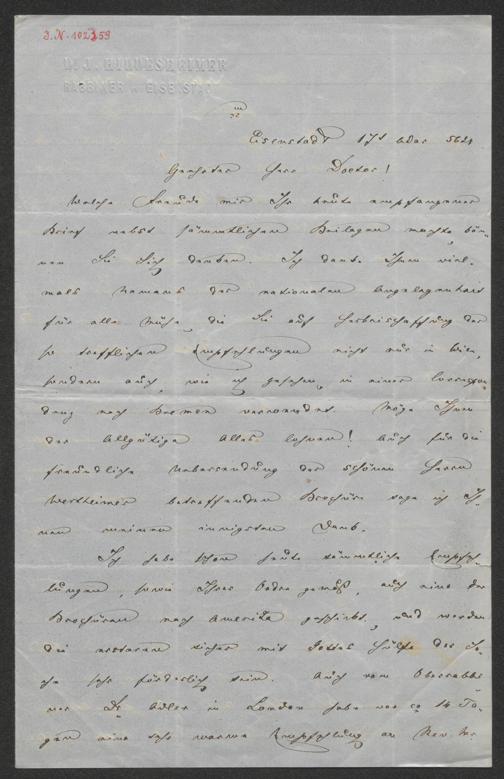 J.N. 102359
Dr. J. HILDESHEIMER
RABBINER IN EISENSTADT
Eisenstadt 17t Adar 5621
Geehrter Herr Doctor!
Welche Freude mir Ihr heute empfangener
Brief nebst sämmtlichen Beilagen machte, kön-
nen Sie Sich denken. Ich danke Ihnen viel-
mals Namens der nationalen Angelegenheit
für alle Mühe, die Sie auf Herbeischaffung der
so trefflichen Empfehlungen nicht nur in Wien,
sondern auch, wie ich gesehen, in einer Correspon
denz nach Bremen verwendet. Möge Ihnen
der Allgütige Alles lohnen! Auch für die
freundliche Uebersendung der schönen Herrn
Wertheimer betreffenden Broschüre sage ich Ih-
nen meinen innigsten Dank.
Ich habe schon heute sämmtliche Empfeh-
lungen, sowie Ihrer Ordre gemäß, auch eine der
Broschüren nach Amerika geschickt, und werden
die ersteren sicher mit Gottes Hülfe der Sa-
che sehr förderlich sein. Auch vom Oberrabbi
ner Dr. Adler in London habe vor ca 14 Ta-
gen eine sehr warme Empfehlung an